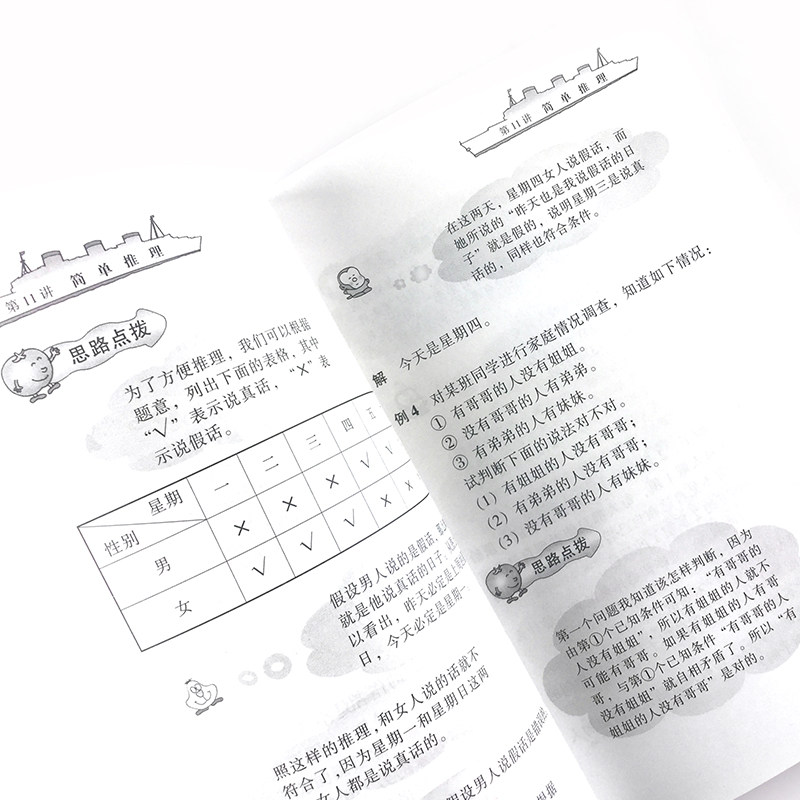 第11讲 简单推理
思路点拨
为了方便推理，我们可以根据
题意，列出下面的表格，其中
“√”表示说真话，“×”表
示说假话。
星期 一 二 三 四 五
性别
男 × × × √ √
女 √ √ √ × ×
假设男人说的是假话，那
就是他说真话的日子，从
以看出，昨天必定是
日，今天必定是星期一。
照这样的推理，和女人说的话就不
符合了，因为星期一和星期日这两
女人都是说真话的。
假设男人说假话是错误的
根据
第11讲 简单推理
在这两天，星期四女人说假话，而
她所说的“昨天也是我说假话的日
子”就是假的，说明星期三是说真
话的，同样也符合条件。
解 今天是星期四。
例4 对某班同学进行家庭情况调查，知道如下情况：
① 有哥哥的人没有姐姐。
② 没有哥哥的人有弟弟。
③ 有弟弟的人有妹妹。
试判断下面的说法对不对。
(1) 有姐姐的人没有哥哥；
(2) 有弟弟的人没有哥哥；
(3) 没有哥哥的人有妹妹。
思路点拨
第一个问题我知道该怎样判断，因为
由第①个已知条件可知：“有哥哥的
人没有姐姐”，所以有姐姐的人就不
可能有哥哥。如果有姐姐的人有哥
哥，与第①个已知条件“有哥哥的人
没有姐姐”就自相矛盾了。所以“有
姐姐的人没有哥哥”是对的。